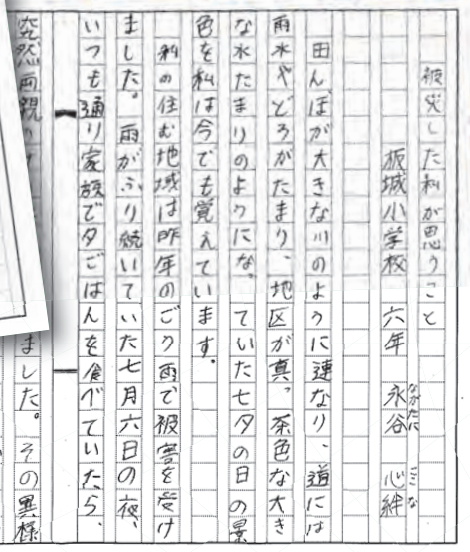 被災した私が思うこと
坂城小学校 六年 永谷 心絆
ながたに ここな
田んぼが大きな川のように連なり、道には
雨水やどろがたまり、地区が真っ茶色な大き
な水たまりのようになっていた七夕の日の景
色を私は今でも覚えています。
私の住む地域は昨年のごう雨で被害を受け
ました。雨がふり続いていた七月六日の夜、
いつも通り家族で夕ごはんを食べていたら、
突然両親の
ました。その異様